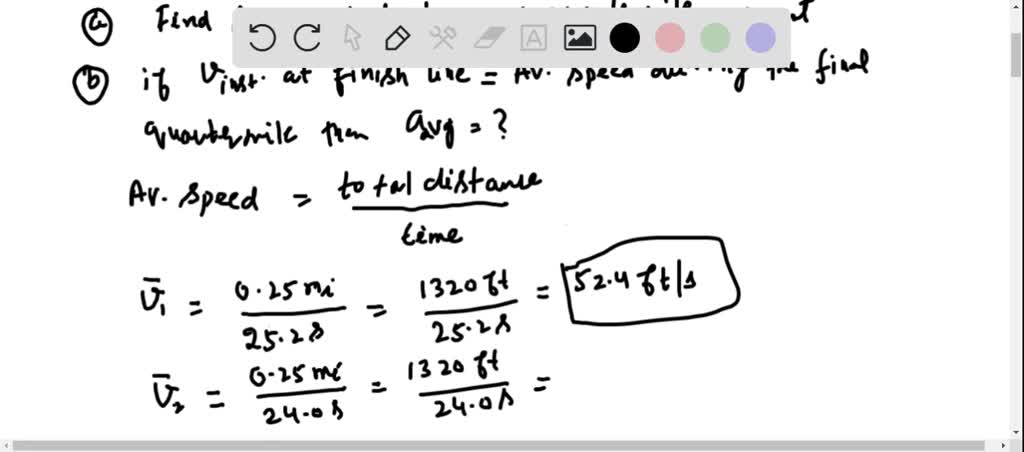 (a) Find
(b) if Vinst. at finish line = Av. speed during the final
quartermile then aavg = ?
Av. speed = total distance / time
V̄₁ = 0.25 mi / 25.2 s = 1320 ft / 25.2 s = 52.4 ft/s
V̄₂ = 0.25 mi / 24.0 s = 1320 ft / 24.0 s =